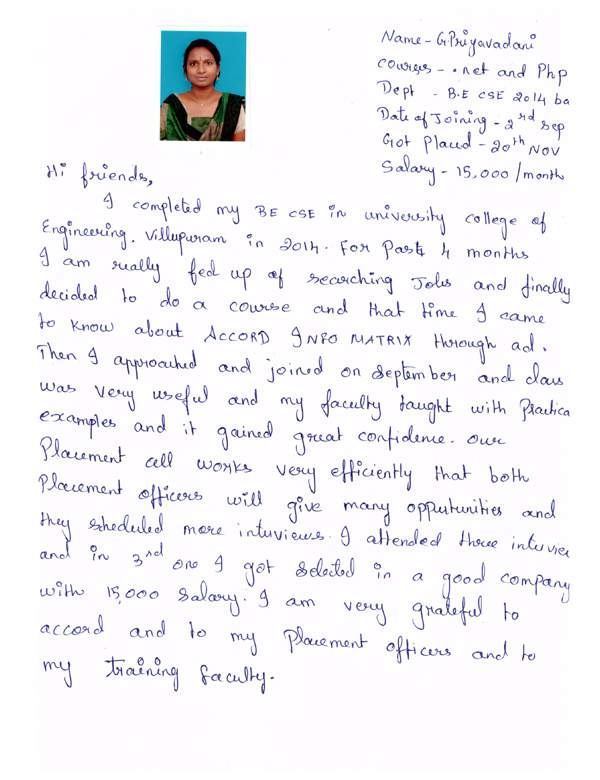 Name - G Priyavadani
courses - .net and Php
Dept - B.E CSE 2014 ba
Date of Joining - 2nd Sep
Got placed - 20th Nov
Salary - 15,000/month
Hi friends,
I completed my BE CSE in university college of
Engineering. Villupuram in 2014. For Past 4 months
I am really fed up of searching Jobs and finally
decided to do a course and that time I came
to know about ACCORD INFO MATRIX through ad.
Then I approached and joined on September and class
was very useful and my faculty taught with Practica
examples and it gained great confidence. our
Placement cell works very efficiently that both
Placement officers will give many oppurtunities and
they scheduled more interviews. I attended three interview
and in 3rd one I got selected in a good company
with 15,000 Salary. I am very grateful to
accord and to my Placement officers and to
my training faculty.